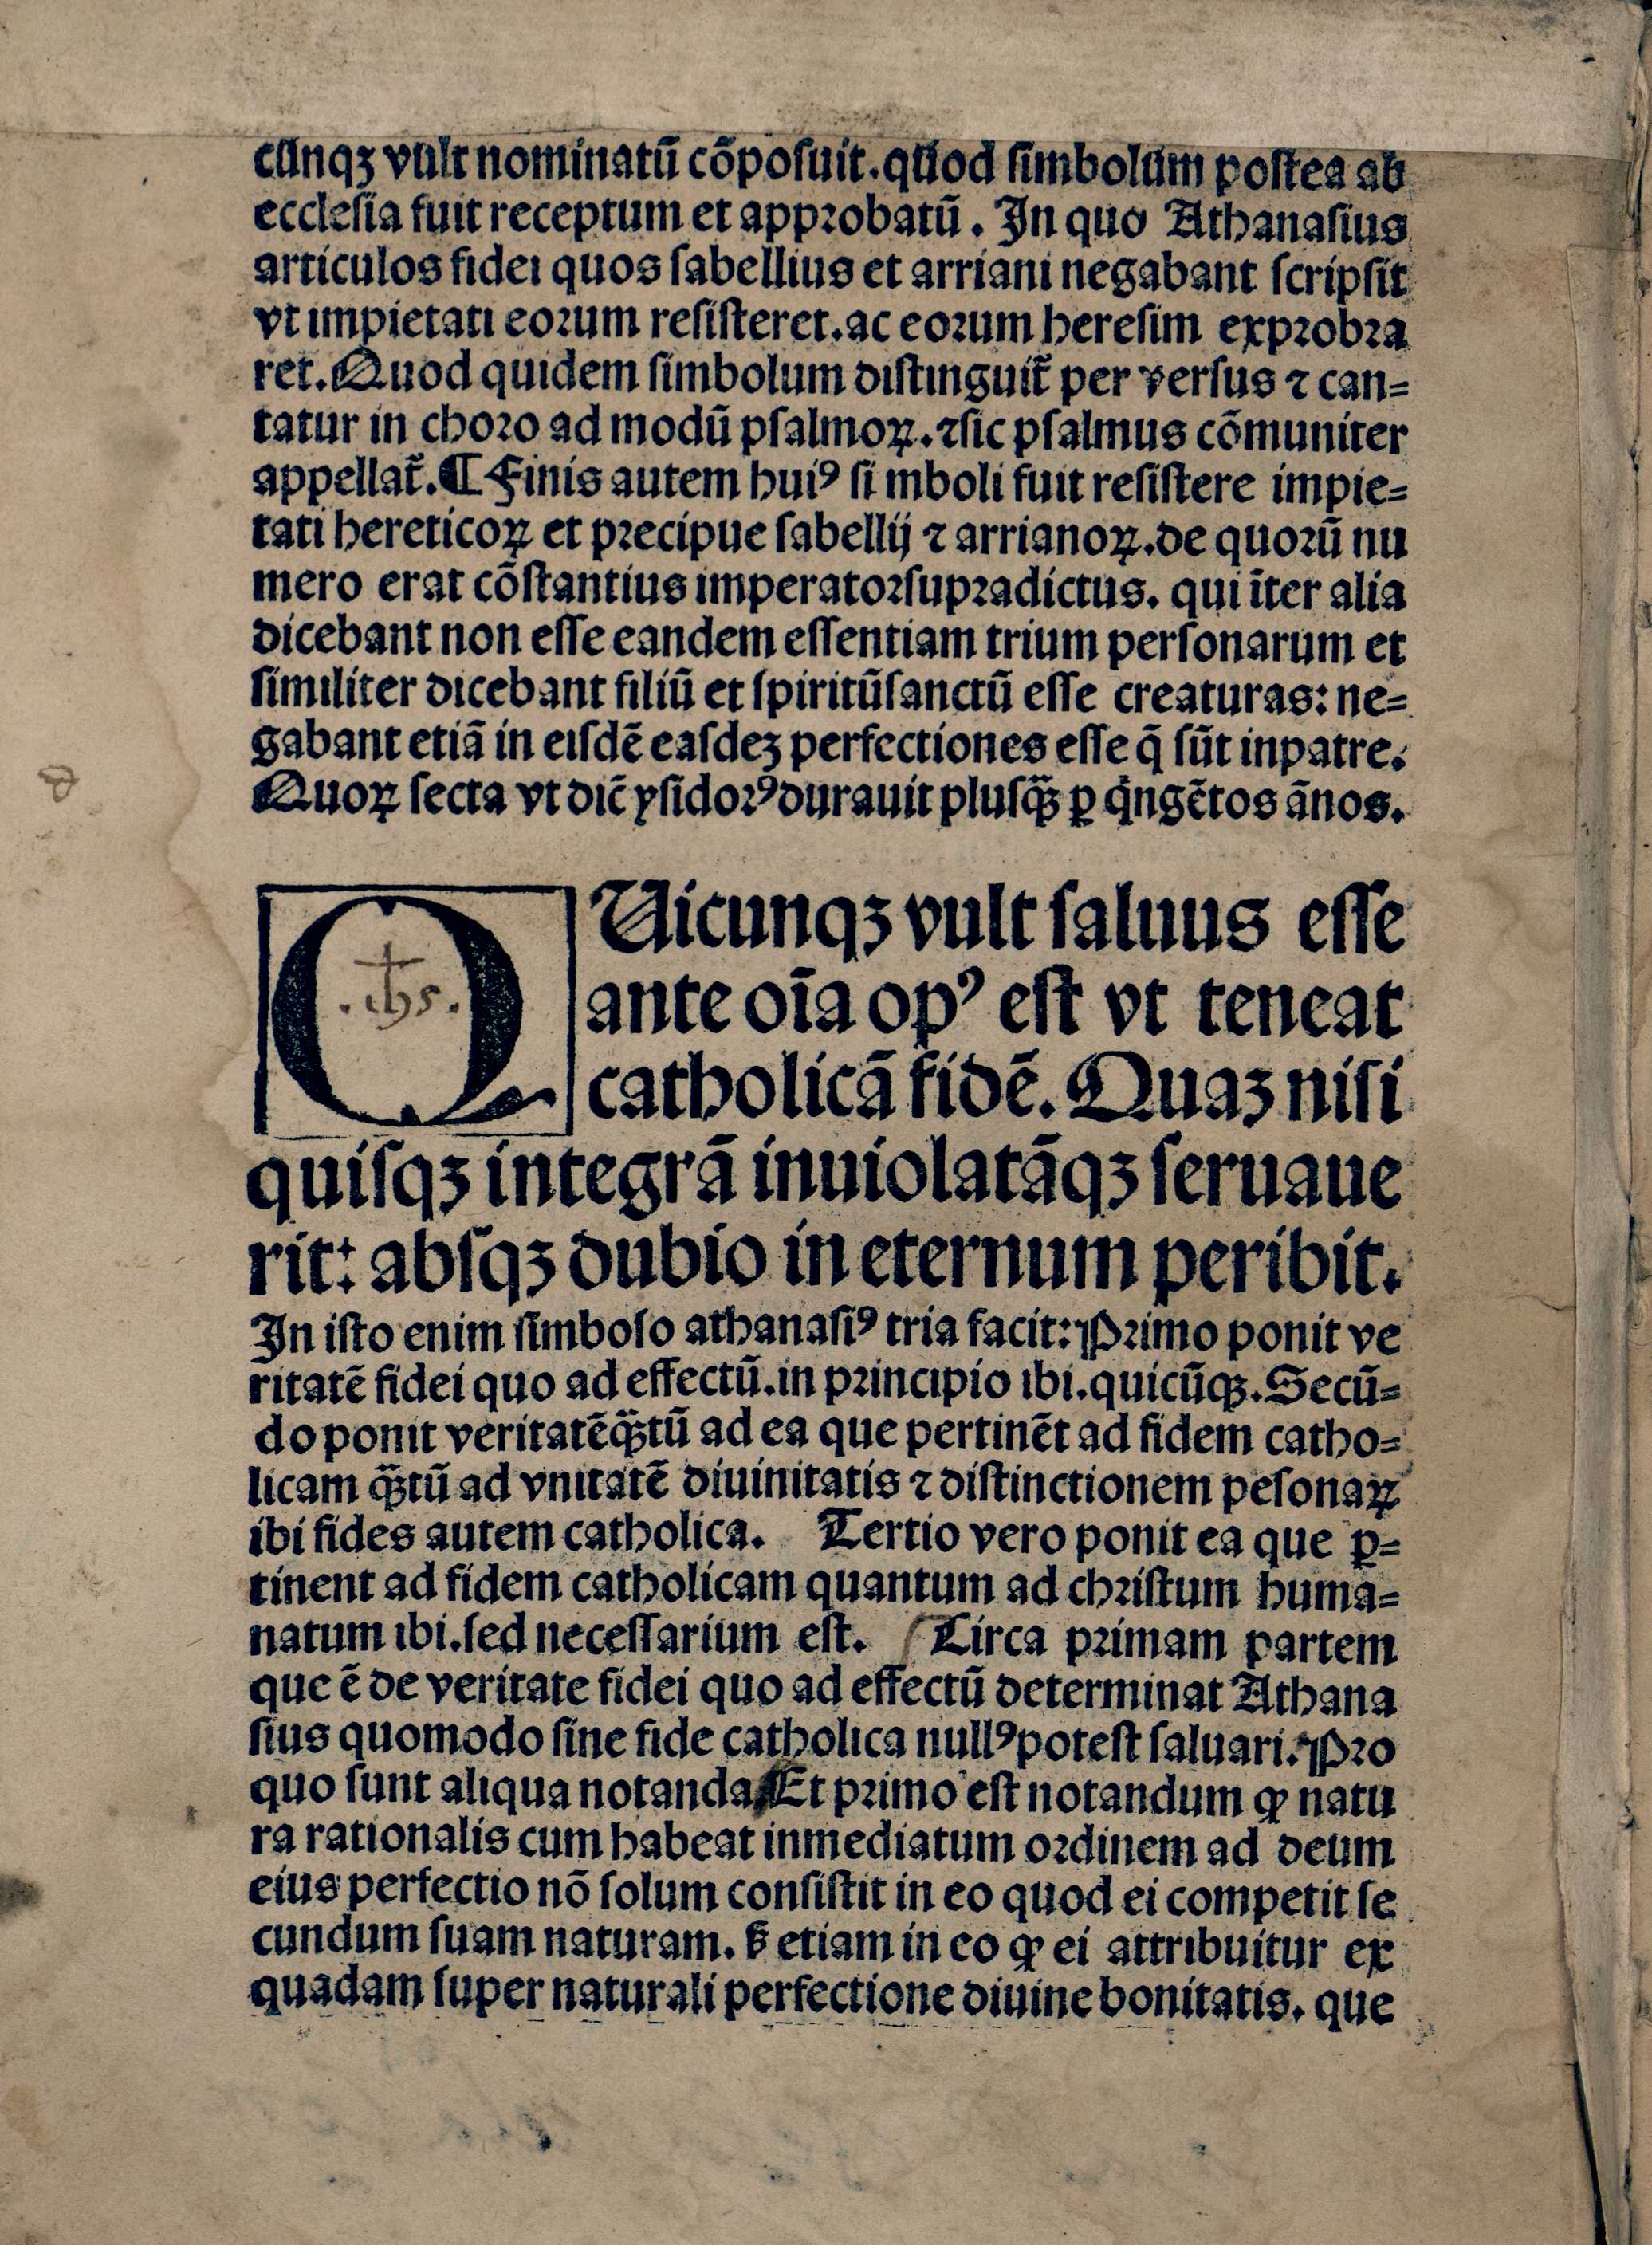 cunqꝫ vult nominatū cōposuit. quod simbolum postea ab
ecclesia fuit receptum et approbatū. In quo Athanasius
articulos fidei quos sabellius et arriani negabant scripsit
vt impietati eorum resisteret. ac eorum heresim exprobra
ret. Quod quidem simbolum distinguit̃ per versus ⁊ can=
tatur in choro ad modū psalmoꝝ. ⁊sic psalmus cōmuniter
appellat̃. ¶ Finis autem huiꝰ si mboli fuit resistere impie=
tati hereticoꝝ et precipue sabellij ⁊ arrianoꝝ. de quorū nu
mero erat cōstantius imperatorsupradictus. qui īter alia
dicebant non esse eandem essentiam trium personarum et
similiter dicebant filiū et spiritūsanctū esse creaturas: ne=
gabant etiā in eisdē easdeꝫ perfectiones esse q̄ sūt inpatre.
Quoꝝ secta vt dic̄ ysidorꝰdurauit plusq̃ꝫ ꝑ q̇ngētos ānos.
Q
Uicunqꝫ vult saluus esse
.ihs.
ante oīa opꝰ est vt teneat
catholicā fidē. Quaꝫ nisi
quisqꝫ integrā inuiolatāqꝫ seruaue
rit: absqꝫ dubio in eternum peribit.
In isto enim simboso athanasiꝰ tria facit: Primo ponit ve
ritatē fidei quo ad effectū. in principio ibi. quicūqꝫ. Secū=
do ponit veritatēq̃ꝫtū ad ea que pertinēt ad fidem catho=
licam q̃ꝫtū ad vnitatē diuinitatis ⁊ distinctionem pesonaꝝ
ibi fides autem catholica. Tertio vero ponit ea que ꝑ=
tinent ad fidem catholicam quantum ad christum huma=
natum ibi. sed necessarium est. Circa primam partem
que ē de veritate fidei quo ad effectū determinat Athana
sius quomodo sine fide catholica nullꝰpotest saluari. Pro
quo sunt aliqua notanda Et primo est notandum ꝙ natu
ra rationalis cum habeat inmediatum ordinem ad deum
eius perfectio nō solum consistit in eo quod ei competit se
cundum suam naturam. ẜ etiam in eo ꝙ ei attribuitur ex
quadam super naturali perfectione diuine bonitatis. que